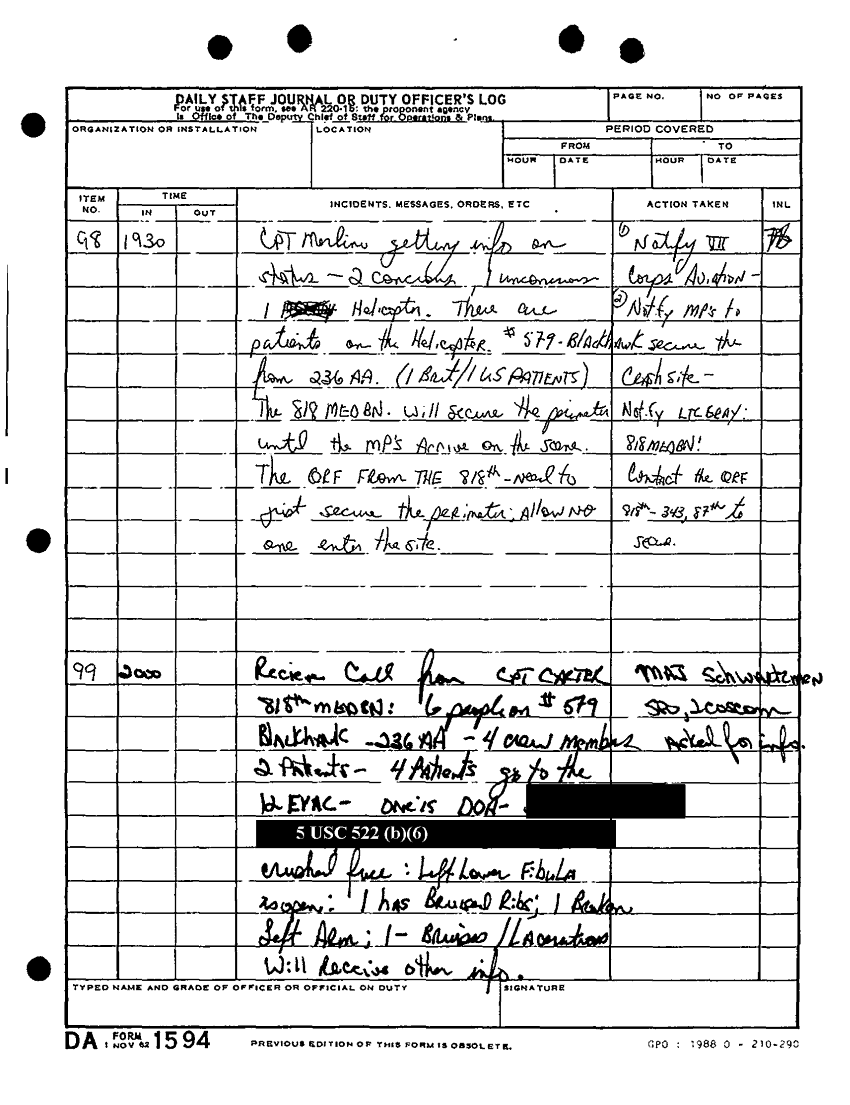 DAILY STAFF JOURNAL OR DUTY OFFICER'S LOG
For use of this form, see AR 220-15; the proponent agency
is Office of The Deputy Chief of Staff for Operations & Plans.
PAGE NO.
NO OF PAGES
ORGANIZATION OR INSTALLATION
LOCATION
PERIOD COVERED
FROM
TO
HOUR
DATE
HOUR
DATE
ITEM NO.
TIME
IN
OUT
INCIDENTS, MESSAGES, ORDERS, ETC
ACTION TAKEN
INL
98 1930 CPT Merlino getting info on
status - 2 concious 1 unconcious
1 Helicopter. There are
patients on the Helicopter. # 579 - Blackhawk
from 236 AA. (1 Brit/1 US PATIENTS)
The 818 MEDBN. will secure the perimeter
until the MP's Arrive on the scene.
The QRF FROM THE 818th - need to
just secure the perimeter; Allow NO
one enter the site.
① Notify VII
Corps Aviation -
② Notify MP's to
secure the
Crash site -
Notify LTC GRAY:
818 MEDBN!
Contact the QRF
818th - 343, 87th to
secure.
99 2000 Recieve Call from CPT CARTER
818th MEDBN: 6 people on # 579
Blackhawk - 236 AA - 4 crew members
2 Patients - 4 Patients go to the
12 EVAC - one is DOA -
5 USC 522 (b)(6)
crushed face : Left Lower Fibula
is open: 1 has Bruised Ribs; 1 Broken
Left Arm; 1 - Bruises / Lacerations
Will Receive other info.
MAJ Schwartzmen
SPO, 2 COSCOM
Asked for info.
TYPED NAME AND GRADE OF OFFICER OR OFFICIAL ON DUTY
SIGNATURE
DA FORM 1 NOV 62 1594
PREVIOUS EDITION OF THIS FORM IS OBSOLETE.
GPO : 1988 O - 210-290